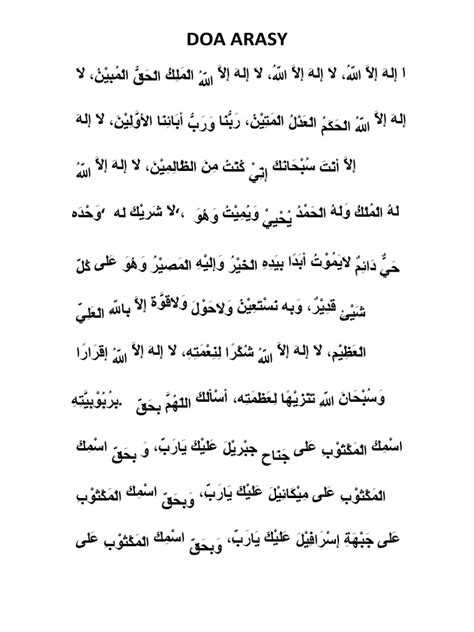 DOA ARASY
ا إله إلاَّ اللهُ، لا إلهَ إلاَّ اللهُ، لا إلهَ إلاَّ اللهُ الْمَلِكُ الْحَقُّ الْمُبِيْنُ، لا
إلهَ إلاَّ اللهُ الْحَكَمُ الْعَدْلُ الْمَتِيْنُ، رَبُّنا وَرَبُّ آبَائِنا الأوَّلِيْنَ، لا إلهَ
إلاَّ أنْتَ سُبْحَانكَ إنِّيْ كُنْتُ مِنَ الظالِمِيْنَ، لا إلهَ إلاَّ اللهُ
وَحْدَه، لا شَرِيْكَ له، لهُ الْمُلْكُ وَلهُ الْحَمْدُ يُحْيِيْ وَيُمِيْتُ وَهُوَ
حَيٌّ دَائِمٌ لايَمُوْتُ أبَدًا بِيَدِهِ الْخَيْرُ وَإليْهِ الْمَصِيْرُ وَهُوَ عَلى كُلِّ
شَيْئ قدِيْرٌ، وَبِه نسْتعِيْنُ وَلاحَوْلَ وَلاقوَّة إلاَّ باللهِ الْعَلِيِّ
الْعَظِيْمِ، لا إلهَ إلاَّ اللهُ شُكْرًا لِنِعْمَتِهِ، لا إلهَ إلاَّ اللهُ إقرَارًا
برُبُوْبِيَّتِهِ. وَسُبْحَانَ اللهِ تنْزِيْهًا لِعَظمَتِه، أسْألكَ اللهُمَّ بحَقِّ
اسْمِكَ الْمَكْتُوْبِ عَلى جَناحِ جِبْرِيْلَ عَليْكَ يَارَبِّ، وَ بحَقِّ اسْمِكَ
الْمَكْتُوْبِ عَلى مِيْكَائِيْلَ عَليْكَ يَارَبِّ، وَبحَقِّ اسْمِكَ الْمَكْتُوْبِ
عَلى جَبْهَةِ إسْرَافِيْلَ عَليْكَ يَارَبِّ، وَبحَقِّ اسْمِكَ الْمَكْتُوْبِ عَلى